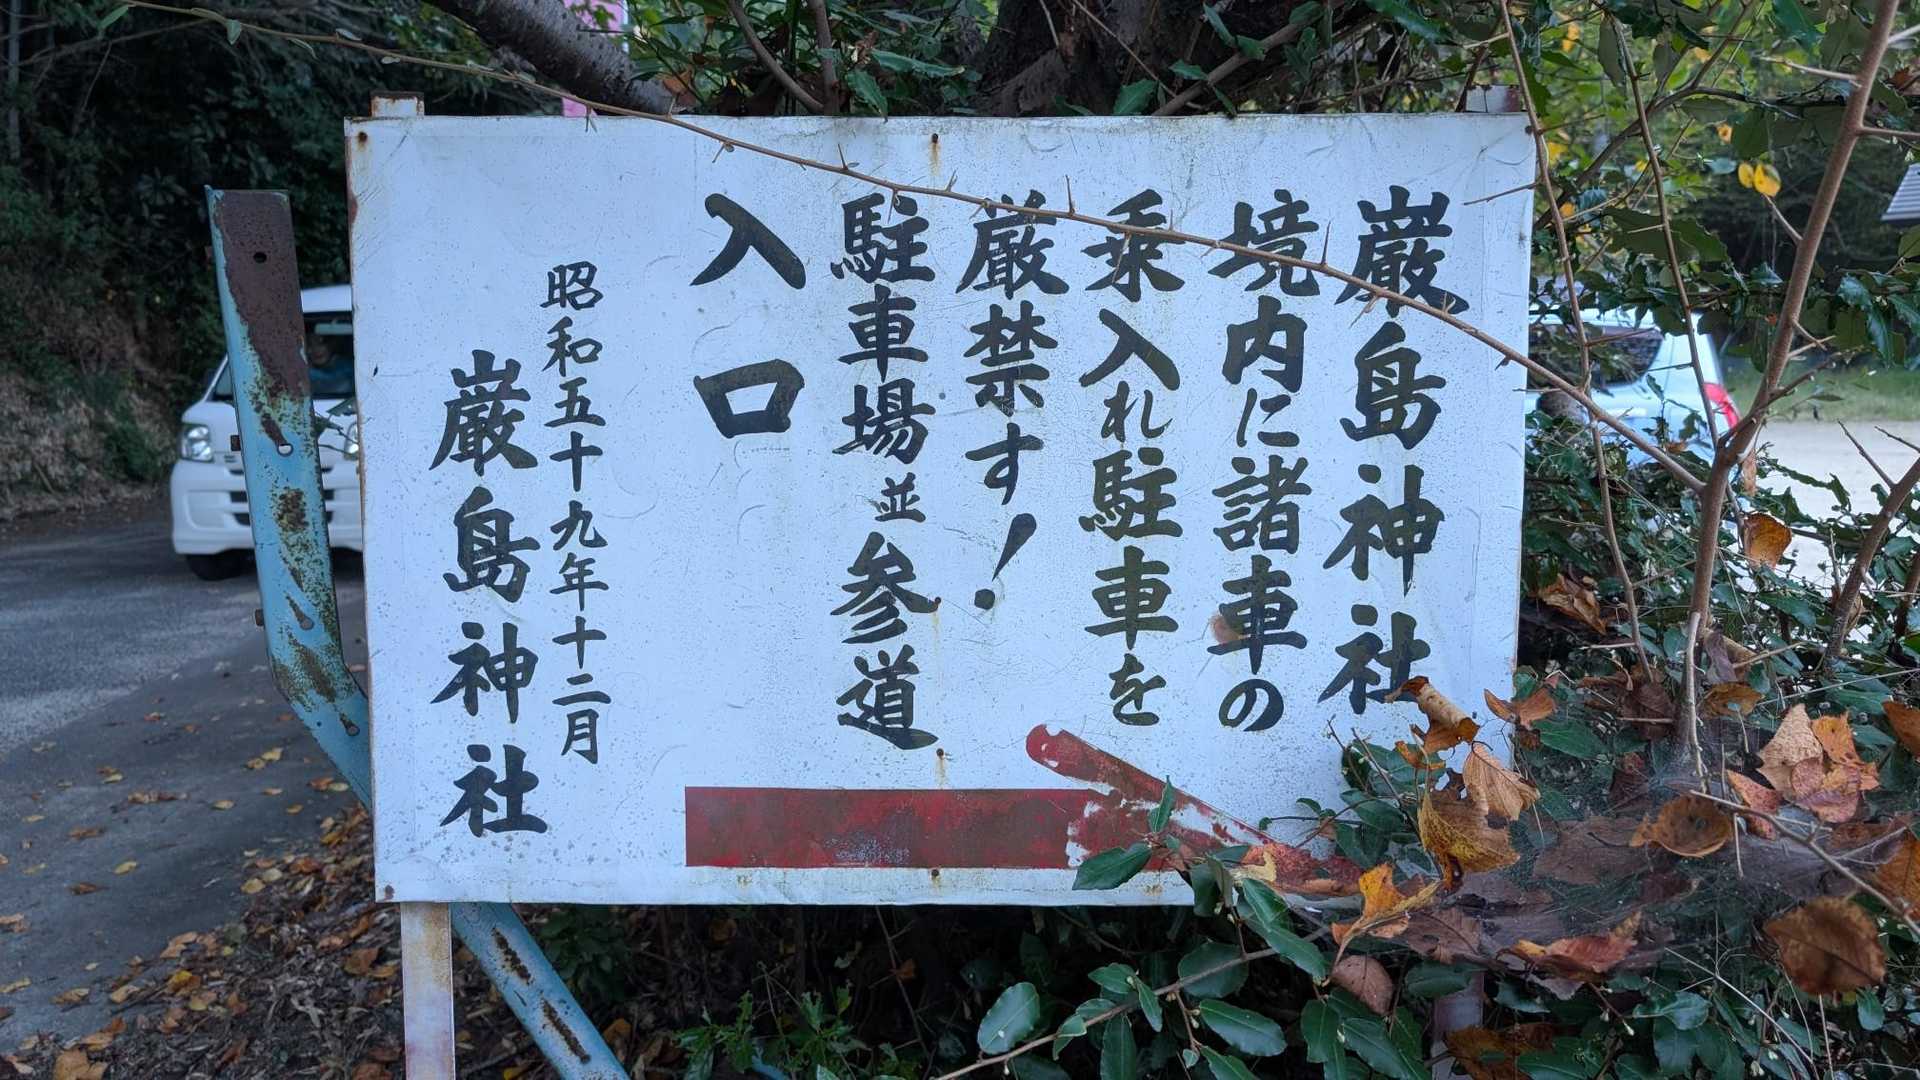 巌島神社
境内に諸車の
乗入れ駐車を
厳禁す！
駐車場並参道
入口
昭和五十九年十二月
巌島神社